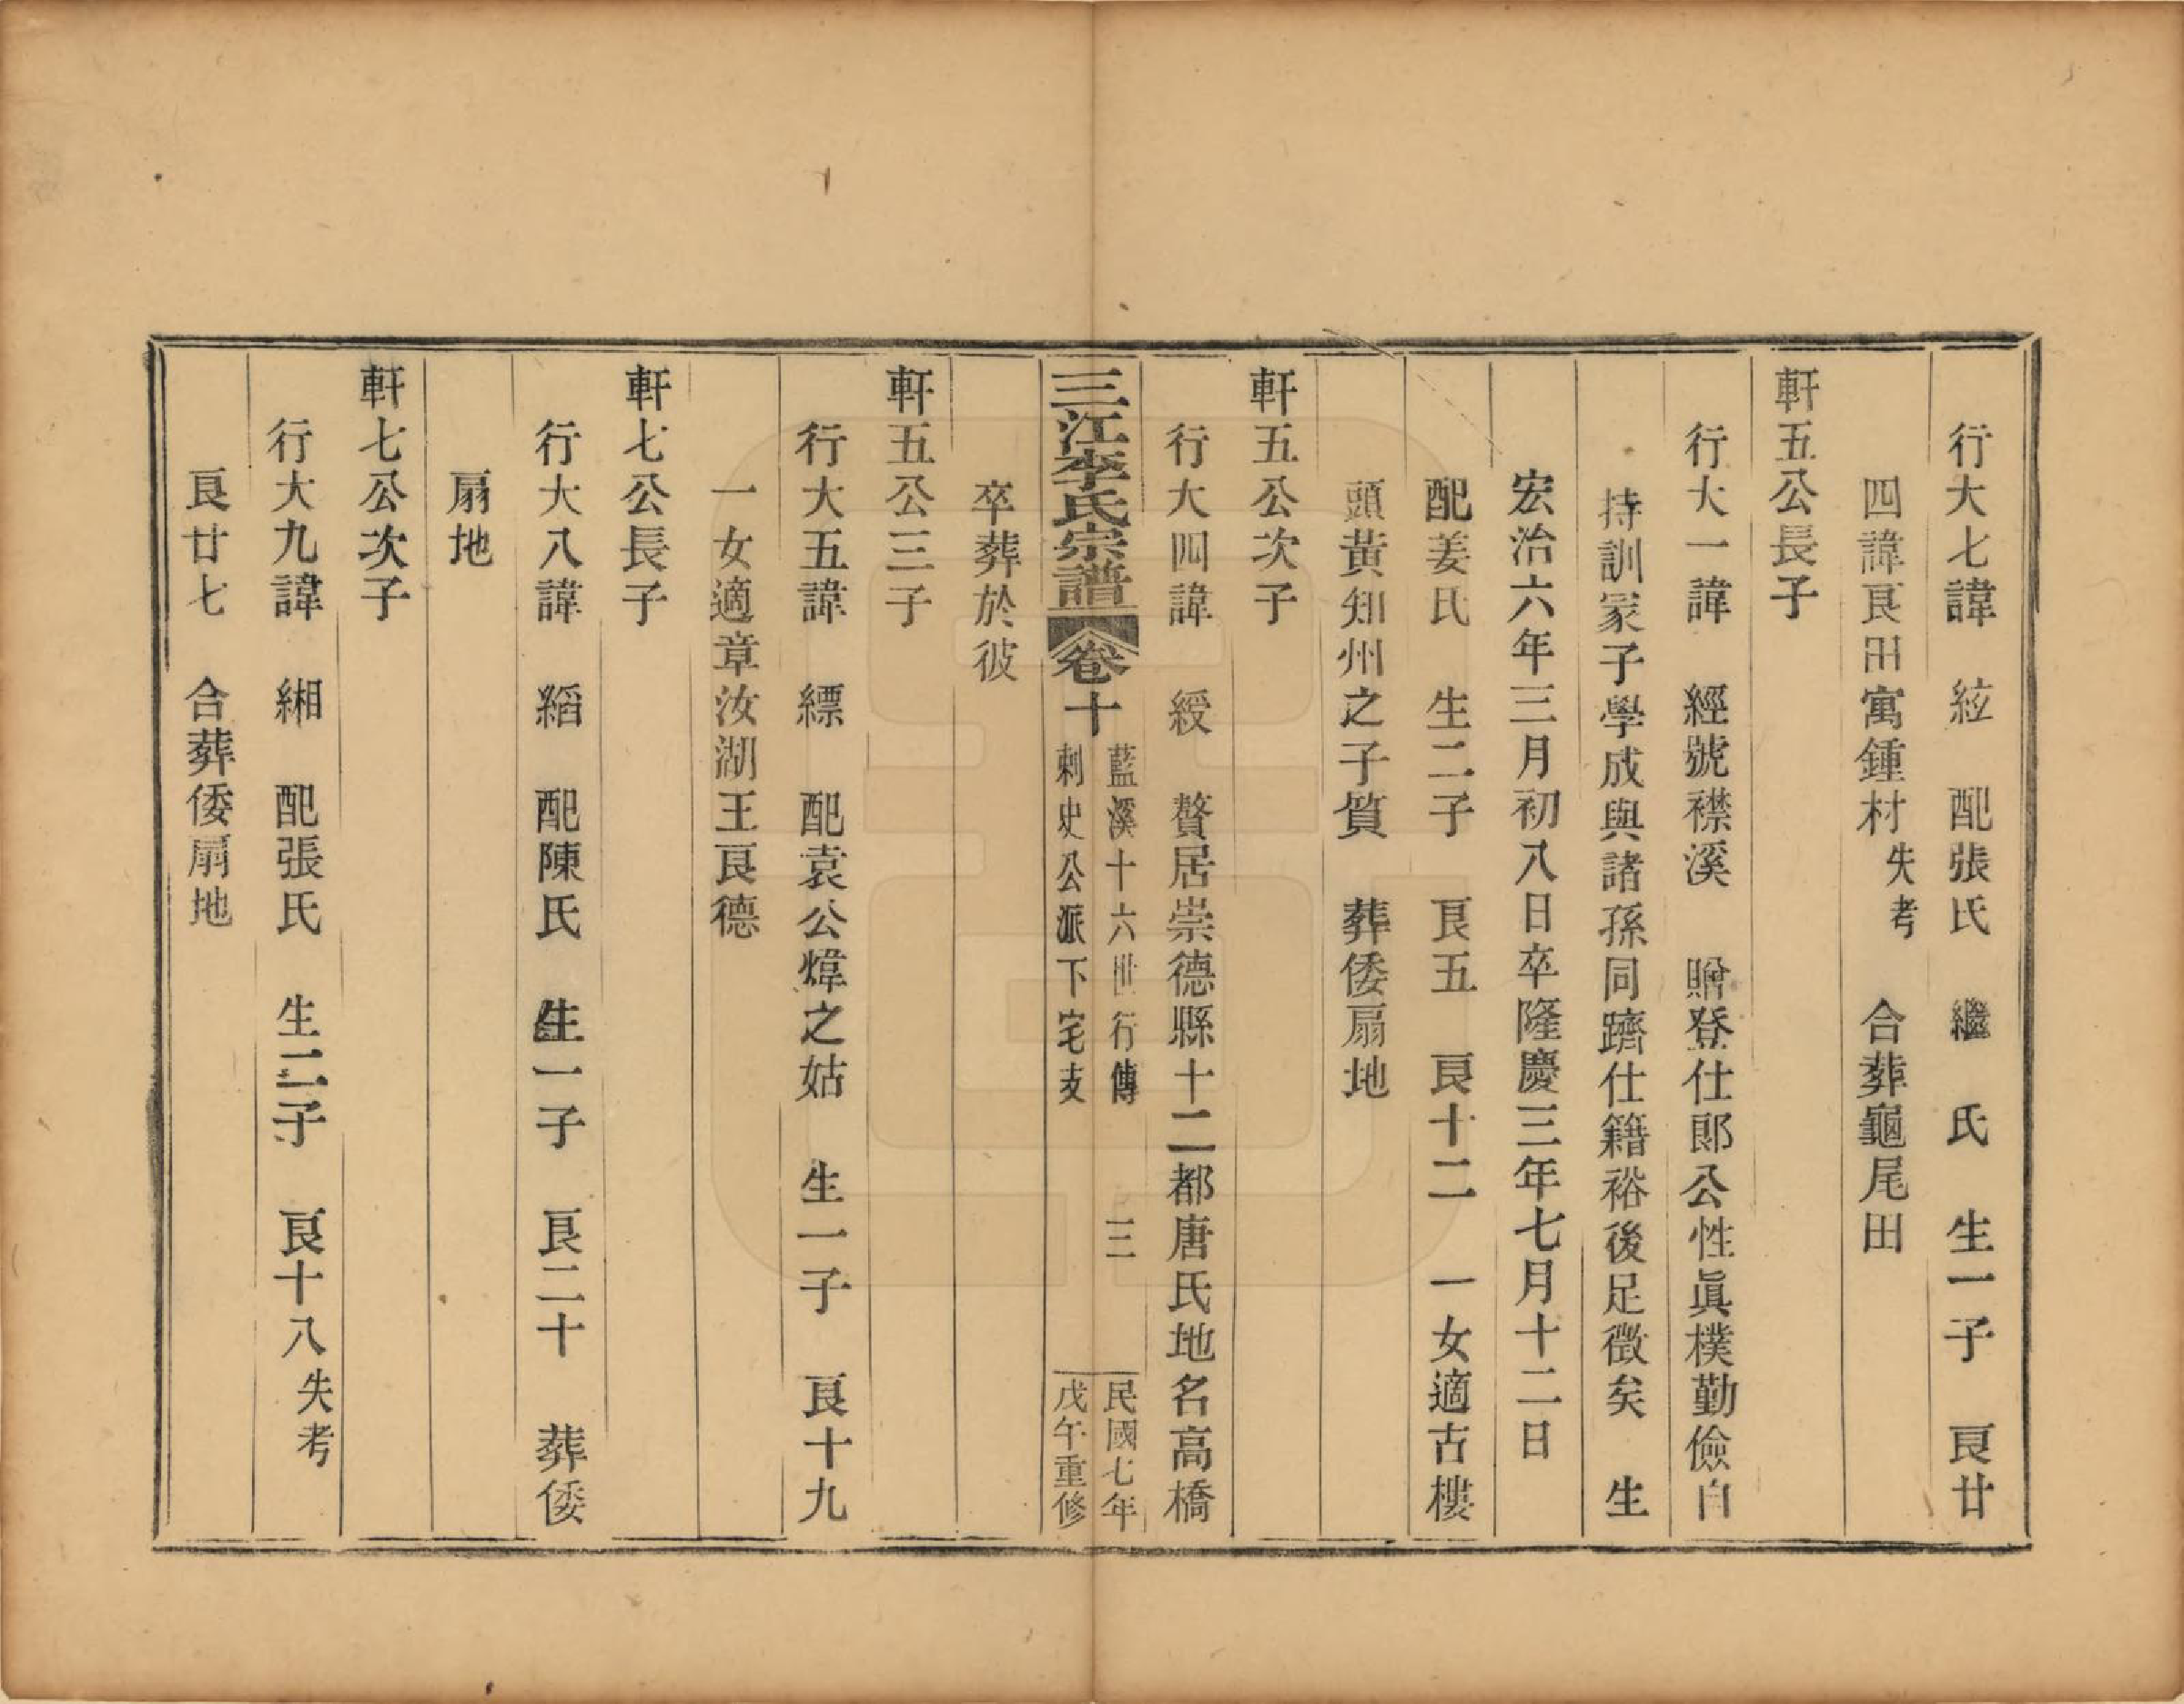 行大七諱　紘　配張氏　繼　氏　生一子　良廿
四諱良田寓鍾村失考　合葬龜尾田
軒五公長子
行大一諱　經號襟溪　贈登仕郎公性眞樸勤儉自
持訓冢子學成與諸孫同躋仕籍裕後足徵矣　生
宏治六年三月初八日卒隆慶三年七月十二日
配姜氏　生二子　良五　良十二　一女適古樓
頭黃知州之子質　葬倭扇地
軒五公次子
行大四諱　綬　贅居崇德縣十二都唐氏地名高橋
三江李氏宗譜　卷十　藍溪十六世行傳　刺史公派下宅支　三　民國七年　戊午重修
卒葬於彼
軒五公三子
行大五諱　縹　配袁公煒之姑　生一子　良十九
一女適章汝湖王良德
軒七公長子
行大八諱　縚　配陳氏　生一子　良二十　葬倭
扇地
軒七公次子
行大九諱　緗　配張氏　生二子　良十八失考
良廿七　合葬倭扇地